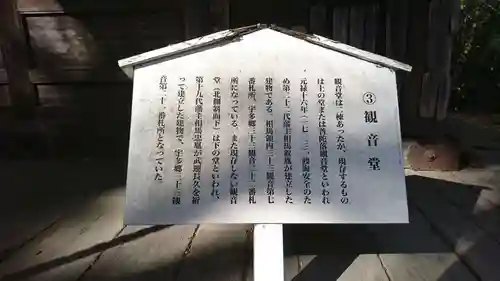 ③観音堂
観音堂は二棟あったが、現存するもの
は上の堂または普陀落観音堂といわれ
元禄十六年(一七〇三)海上安全のた
め第二十二代藩主相馬叙胤が建立した
建物である。相馬領内三十三観音第七
番札所、宇多郷三十三観音三十二番札
所になっている。また現存しない観音
堂(北側斜面下)は下の堂といわれ、
第十九代藩主相馬忠胤が武運長久を祈
って建立した建物で、宇多郷三十三観
音第三十一番札所となっていた。